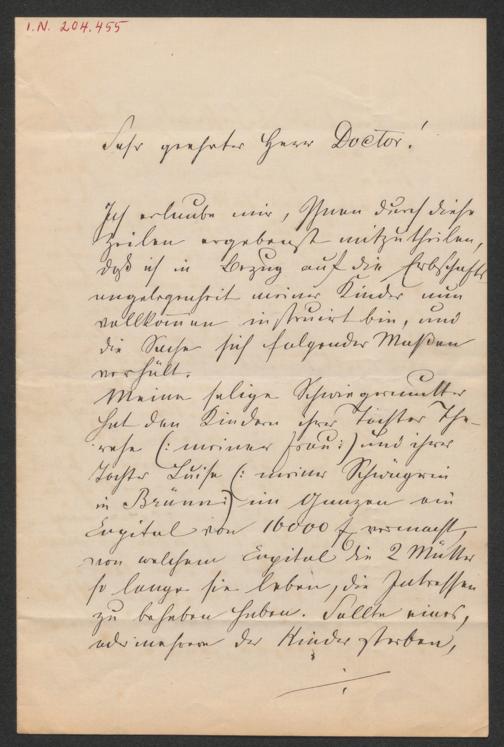 I.N. 204.455
Sehr geehrter Herr Doctor!
Ich erlaube mir, Ihnen durch diese
Zeilen ergebenst mitzutheilen,
daß ich in Bezug auf die Erbschafts
angelegenheit meiner Kinder nun
vollkommen instruirt bin, und
die Sache sich folgender Maßen
verhält.
Meine selige Schwiegermutter
hat den Kindern ihrer Tochter The-
rese (: meiner Frau :) und ihrer
Tochter Luise (: meiner Schwägerin
in Brünn :) im Ganzen ein
Capital von 16000 f vermacht,
von welchem Capital die 2 Mütter
so lange sie leben, die Intressen
zu beheben haben. Sollte eines,
oder mehrere der Kinder sterben,
./.